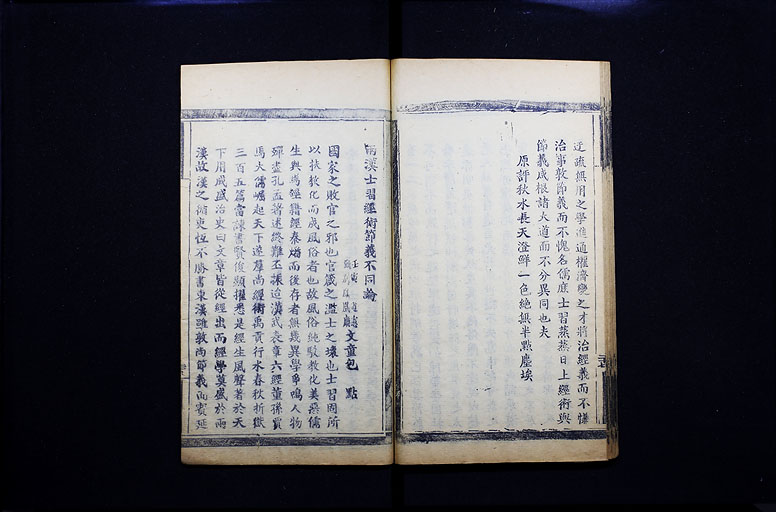 迂疏無用之學進通權濟變之才將治經義而不慊
治事敦節義而不愧名儒庶士習蒸蒸日上經術與
節義咸根諸大道而不分異同也夫
原評秋水長天澄鮮一色絕無半點塵埃
兩漢士習經術節義不同論
文童包 點
國家之敗官之邪也官箴之濫士之壞也士習固所
以扶教化而成風俗者也故風俗純駁教化美惡儒
生與為經籍經秦燔而後存者無幾異學爭鳴人物
殫盡孔孟著述終難丕振迨漢武表章六經董孫賈
馬大儒崛起天下遂羣尚經術禹貢行水春秋折獄
三百五篇當諫書賢俊顯擢悉是經生風聲著於天
下用成盛治史曰文章皆從經出而經學莫盛於兩
漢故漢之循吏恆不勝書東漢雖敦尚節義而實延